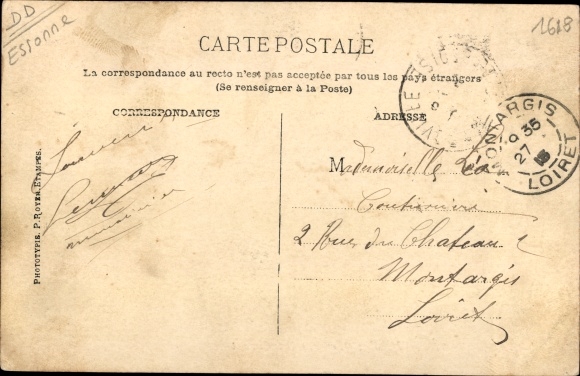 DD
Essonne
1618
CARTE POSTALE
La correspondance au recto n'est pas acceptée par tous les pays étrangers
(Se renseigner à la Poste)
CORRESPONDANCE
ADRESSE
MONTARGIS
9 35
27
LOIRET
Mademoiselle
Couturière
2 Rue du Chateau
Montargis
Loiret
Souvenir
PHOTOTYPIE. P. ROYER. ETAMPES.